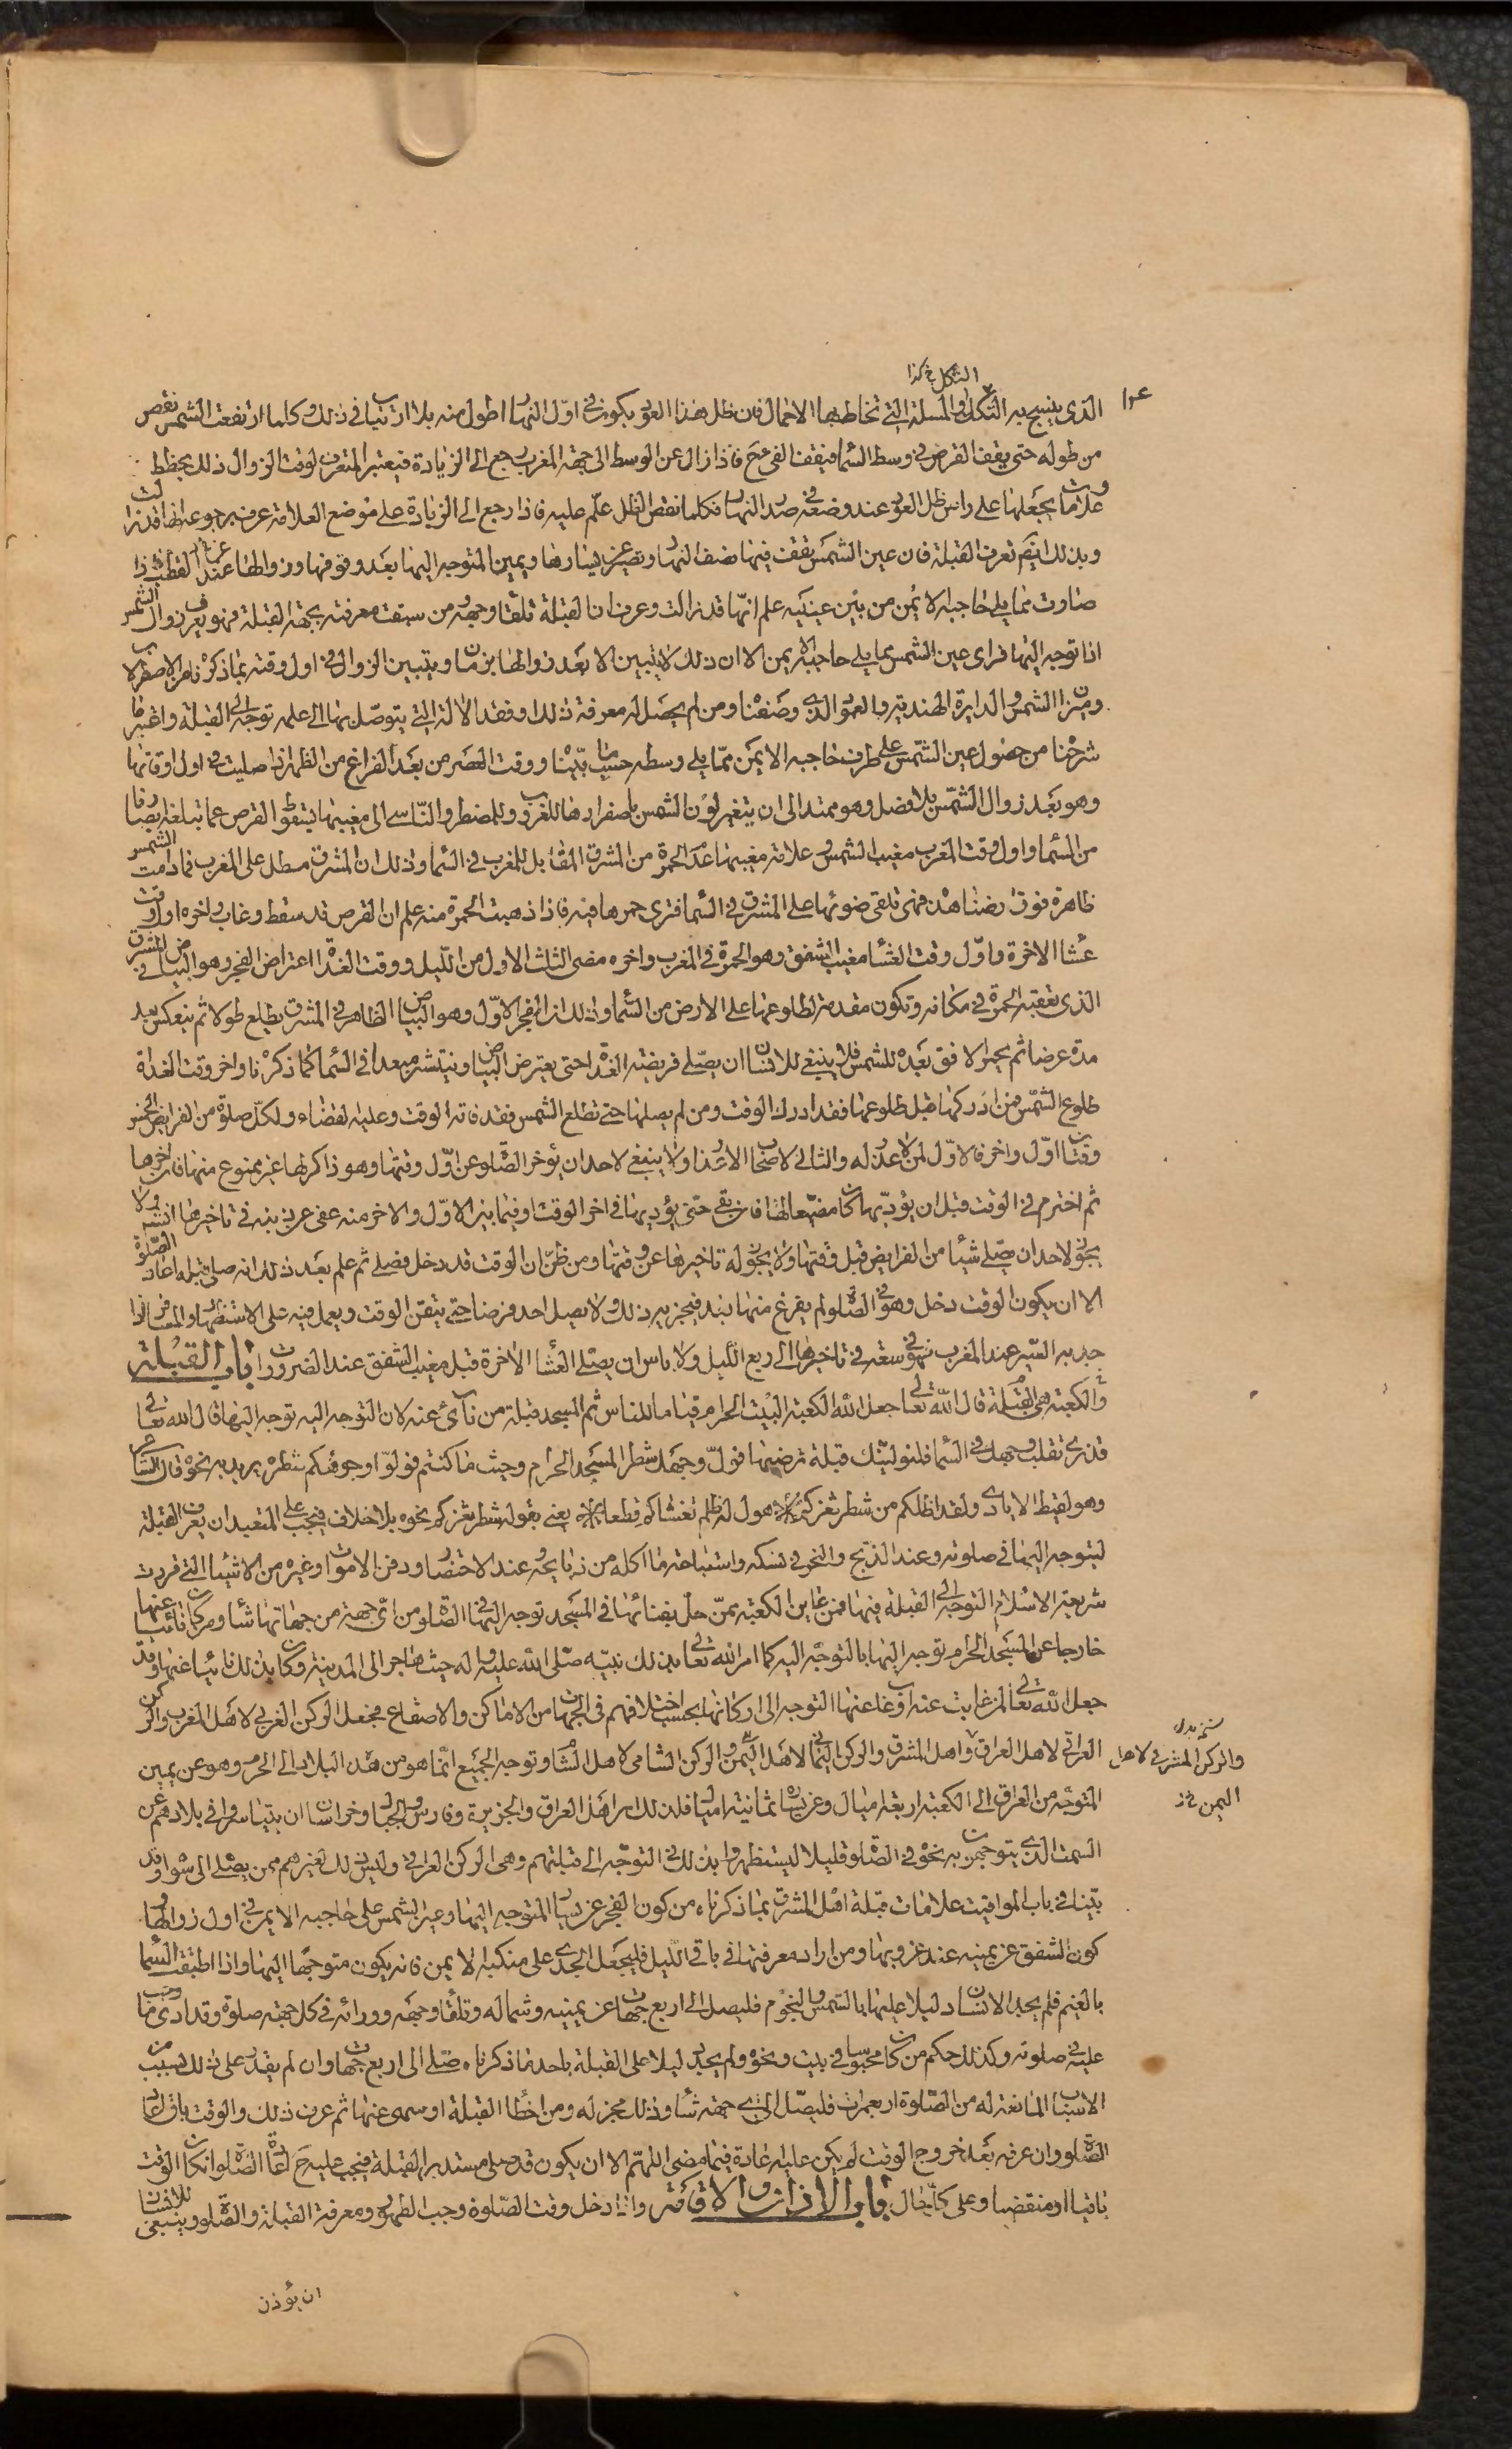 الشكل خ كذا
الذي ينسج به التكك او المسلة التي تخاط بها الاحمال فان ظل هذا العود يكون في اول النهار اطول منه بلا ارتياب في ذلك وكلما ارتفعت الشمس نقص
من طوله حتى يقف القرص في وسط السما فيقف الفي ح فاذا زال عن الوسط الى جهة المغرب رجع الى الزيادة فيعتبر المتعرف لوقت الزوال ذلك بخطط
وعلامات يجعلها على راس ظل العود عند وضعه في صدر النهار فكلما نقص الظل علّم عليه فاذا رجع الى الزيادة على موضع العلامة عرف برجوعه انها قد زالت
وبذلك ايضا تعرف القبلة فان عين الشمس تقف فيها نصف النهار وتصير عن يسارها ويمين المتوجه اليها بعد وقوفها وزوالها عن القطب فاذا
صارت مما يلي حاجبه الايمن من بين عينيه علم انها قد زالت وعرف ان القبلة تلقاء وجهه ومن سبقت معرفته بجهة القبلة فهو يعرف زوال الشمس
اذا توجه اليها فراى عين الشمس مما يلي حاجبه الايمن الا ان ذلك لا يتبين الا بعد زوالها بزمان ويتبين الزوال في اول وقته بما ذكرناه من الاصطرلاب
وميزان الشمس والدايرة الهندية والعمود الذي وصفنا ومن لم يحصل له معرفة ذلك او فقد الالة التي يتوصل بها الى علمه توجه الى القبلة واعتبر ما
شرحنا من حصول عين الشمس على طرف حاجبه الايمن مما يلي وسطه حسب ما بيّنا ووقت العصر من بعد الفراغ من الظهر اذا صليت في اول اوقاتها
وهو بعد زوال الشمس بلا فصل وهو ممتد الى ان يتغير لون الشمس باصفرارها للغروب وللمضطر والناسي الى مغيبها بسقوط القرص عما تبلغه ابصارنا
من السما واول وقت المغرب مغيب الشمس وعلامة مغيبها عدم الحمرة من المشرق المقابل للمغرب في السما وذلك ان المشرق مطل على المغرب فما دامت الشمس
ظاهرة فوق ارضنا هذه فهي تلقى ضوئها على المشرق في السما فترى حمرتها فيه فاذا ذهبت الحمرة منه علم ان القرص قد سقط وغاب واخره اول وقت
عشا الاخرة واول وقت العشا مغيب الشفق وهو الحمرة في المغرب واخره مضى الثلث الاول من الليل ووقت الغداة اعتراض الفجر وهو البياض في المشرق
الذي تعقبه الحمرة في مكانه وتكون مقدمة لطلوعها على الارض من السما وذلك ان الفجر الاول وهو البياض الظاهر في المشرق يطلع طولا ثم ينعكس بعد
مدة عرضا ثم يحمر الافق بعده للشمس فلا ينبغي للانسان ان يصلي فريضة الغداة حتى يعترض البياض وينتشر صعدا في السما كما ذكرنا واخر وقت الغداة
طلوع الشمس فمن ادركها قبل طلوعها فقد ادرك الوقت ومن لم يصلها حتى تطلع الشمس فقد فاته الوقت وعليه القضاء ولكل صلوة من الفرايض الخمس
وقتان اول واخر فالاول لمن لا عذر له والثاني لاصحاب الاعذار ولا ينبغي لاحد ان يؤخر الصلوة عن اول وقتها وهو ذاكر لها غير ممنوع منها فان اخرها
ثم اخترم في الوقت قبل ان يؤديها كان مضيعا لها فان بقي حتى يؤديها في اخر الوقت او فيما بين الاول والاخر منه عفى عن ذنبه في تاخيرها انشا ولا
يجوز لاحد ان يصلي شيئا من الفرايض قبل وقتها ولا يجوز له تاخيرها عن وقتها ومن ظن ان الوقت قد دخل فصلى ثم علم بعد ذلك انه صلى قبله اعاد الصلوة
الا ان يكون الوقت دخل وهو في الصلوة لم يفرغ منها بعد فيجزيه ذلك ولا يصل احد فرضا حتى يتيقن الوقت ويعمل فيه على الاستظهار والمسافر اذا
جد به السير عند المغرب فهو في سعة في تاخيرها الى ربع الليل ولا باس ان يصلي العشا الاخرة قبل مغيب الشفق عند الضرورات باب القبلة
والكعبة هي القبلة قال الله تعالى جعل الله الكعبة البيت الحرام قياما للناس ثم المسجد قبلة من نآى عنه لان التوجه اليه توجه اليها قال الله تعالى
قد نرى تقلب وجهك في السما فلنولينك قبلة ترضيها فول وجهك شطر المسجد الحرام وحيث ما كنتم فولوا وجوهكم شطره يريد به نحوه قال الشاعر
وهو لقيط الايادي وقد اظلكم من شطر ثغركم هول له ظلم تغشاكم قطعا يعني بقوله شطر ثغركم نحوه بلا خلاف فيجب على المتعبد ان يعرف القبلة
ليتوجه اليها في صلوته وعند الذبح والنحر في نسكه واستباحة ما اكله من ذبايحه وعند الاحتضار ودفن الاموات وغيره من الاشيا التي قررت
شريعة الاسلام التوجه الى القبلة فيها فمن عاين الكعبة ممن حل بفنائها في المسجد توجه اليها في الصلوة من اي جهة من جهاتها شا ومن كان نائيا عنها
خارجا عن المسجد الحرام توجه اليها بالتوجه اليه كما امر الله تعالى بذلك نبيه صلى الله عليه واله حيث هاجر الى المدينة وكان بذلك نائيا عنها وقد
جعل الله تعالى لمن غابت عنه او غاب عنها التوجه الى اركانها بحسب اختلافهم في الجهات من الاماكن والاصقاع فجعل الركن الغربي لاهل المغرب والركن
العراقي لاهل العراق واهل المشرق والركن اليماني لاهل اليمن والركن الشامي لاهل الشام وتوجه الجميع انما هو من هذه البلاد الى الحرم وهو عن يمين
والركن المشرقي لاهل
اليمن خ ز
المتوجه من العراق الى الكعبة اربعة اميال وعن يساره ثمانية اميال فلذلك امر اهل العراق والجزيرة وفارس والجبال وخراسان ان يتياسروا في بلادهم عن
السمت الذي يتوجهون به نحوه في الصلوة قليلا ليستظهروا بذلك في التوجه الى قبلتهم وهي الركن العراقي وليس ذلك لغيرهم ممن يصلي الى سواه وقد
بيّنا في باب المواقيت علامات قبلة اهل المشرق بما ذكرناه من كون الفجر عن يسار المتوجه اليها وعين الشمس على حاجبه الايمن في اول زوالها و
كون الشفق عن يمينه عند غروبها ومن اراد معرفتها في باقي الليل فليجعل الجدي على منكبه الايمن فانه يكون متوجها اليها واذا اطبقت السما
بالغيم فلم يجد الانسان دليلا عليها بالشمس والنجوم فليصل الى اربع جهات عن يمينه وشماله وتلقاء وجهه وورائه في كل جهة صلوة وقد ادى ما وجب
عليه في صلوته وكذلك حكم من كان محبوسا في بيت ونحوه ولم يجد دليلا على القبلة باحد ما ذكرناه صلى الى اربع جهات وان لم يقدر على ذلك لسبب من
الاسباب المانعة له من الصلوة اربع مرات فليصل الى اي جهة شا وذلك مجز له ومن اخطا القبلة او سهى عنها ثم عرف ذلك والوقت باق اعاد
الصلوة وان عرفه بعد خروج الوقت لم يكن عليه اعادة فيما مضى اللهم الا ان يكون قد صلى مستدبر القبلة فيجب عليه ح اعادة الصلوة ان كان الوقت
باقيا او منقضيا وعلى كل حال باب الاذان والاقامة واذا دخل وقت الصلوة وجب الطهور ومعرفة القبلة والصلوة وينبغي للانسان
ان يؤذن